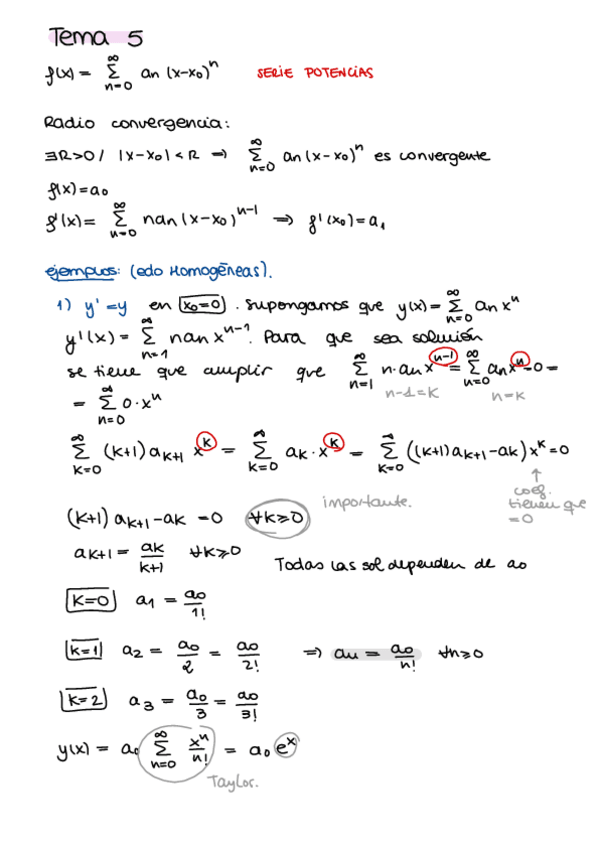 Tema 5
f(x) = ∞ Σ n=0 an (x-x₀)ⁿ SERIE POTENCIAS
Radio convergencia:
∃R>0 / |x-x₀|<R ⇒ ∞ Σ n=0 an(x-x₀)ⁿ es convergente
f(x)=a₀
f'(x)= ∞ Σ n=0 nan(x-x₀)ⁿ⁻¹ ⇒ f'(x₀)=a₁
ejemplos: (edo Homogéneas).
1) y'=y en x₀=0. Supongamos que y(x)= ∞ Σ n=0 an xⁿ
y'(x) = ∞ Σ n=1 nan xⁿ⁻¹. Para que sea solución
se tiene que cumplir que ∞ Σ n=1 n·an x^(n-1) = ∞ Σ n=0 an xⁿ - 0 =
n-1=K n=K
= ∞ Σ n=0 0·xⁿ
∞ Σ K=0 (K+1) a_{K+1} x^K = ∞ Σ K=0 aK·x^K = ∞ Σ K=0 ((K+1)a_{K+1}-aK) x^K = 0
↑
coef.
tienen que
=0
importante.
(K+1) a_{K+1} - aK = 0 ∀K≥0
a_{K+1} = aK/K+1 ∀K≥0
Todas las sol dependen de a₀
K=0 a₁ = a₀/1!
K=1 a₂ = a₀/2 = a₀/2! ⇒ an = a₀/n! ∀n≥0
K=2 a₃ = a₀/3 = a₀/3!
y(x) = a₀ ∞ Σ n=0 xⁿ/n! = a₀ eˣ
Taylor.